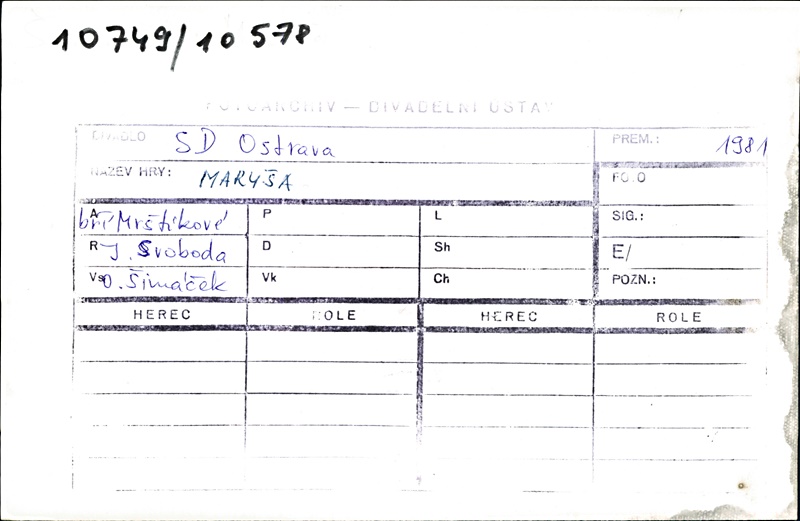 10749/10578
FOTOARCHIV — DIVADELNÍ ÚSTAV
DIVADLO SD Ostrava PREM.: 1981
NÁZEV HRY: MARYŠA FOTO
A bří Mrštíkové P L SIG.:
R J. Svoboda D Sh E/
Vs O. Šimáček Vk Ch POZN.:
HEREC ROLE HEREC ROLE